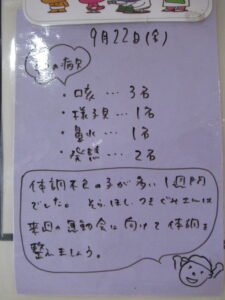 9月22日(金)
の病欠
・咳 … 3名
・様子見 … 1名
・鼻水 … 1名
・発熱 … 2名
体調不良の子が多い1週間
でした。そら、ほし、つきぐみさんは
来週の運動会に向けて体調を
整えましょう。